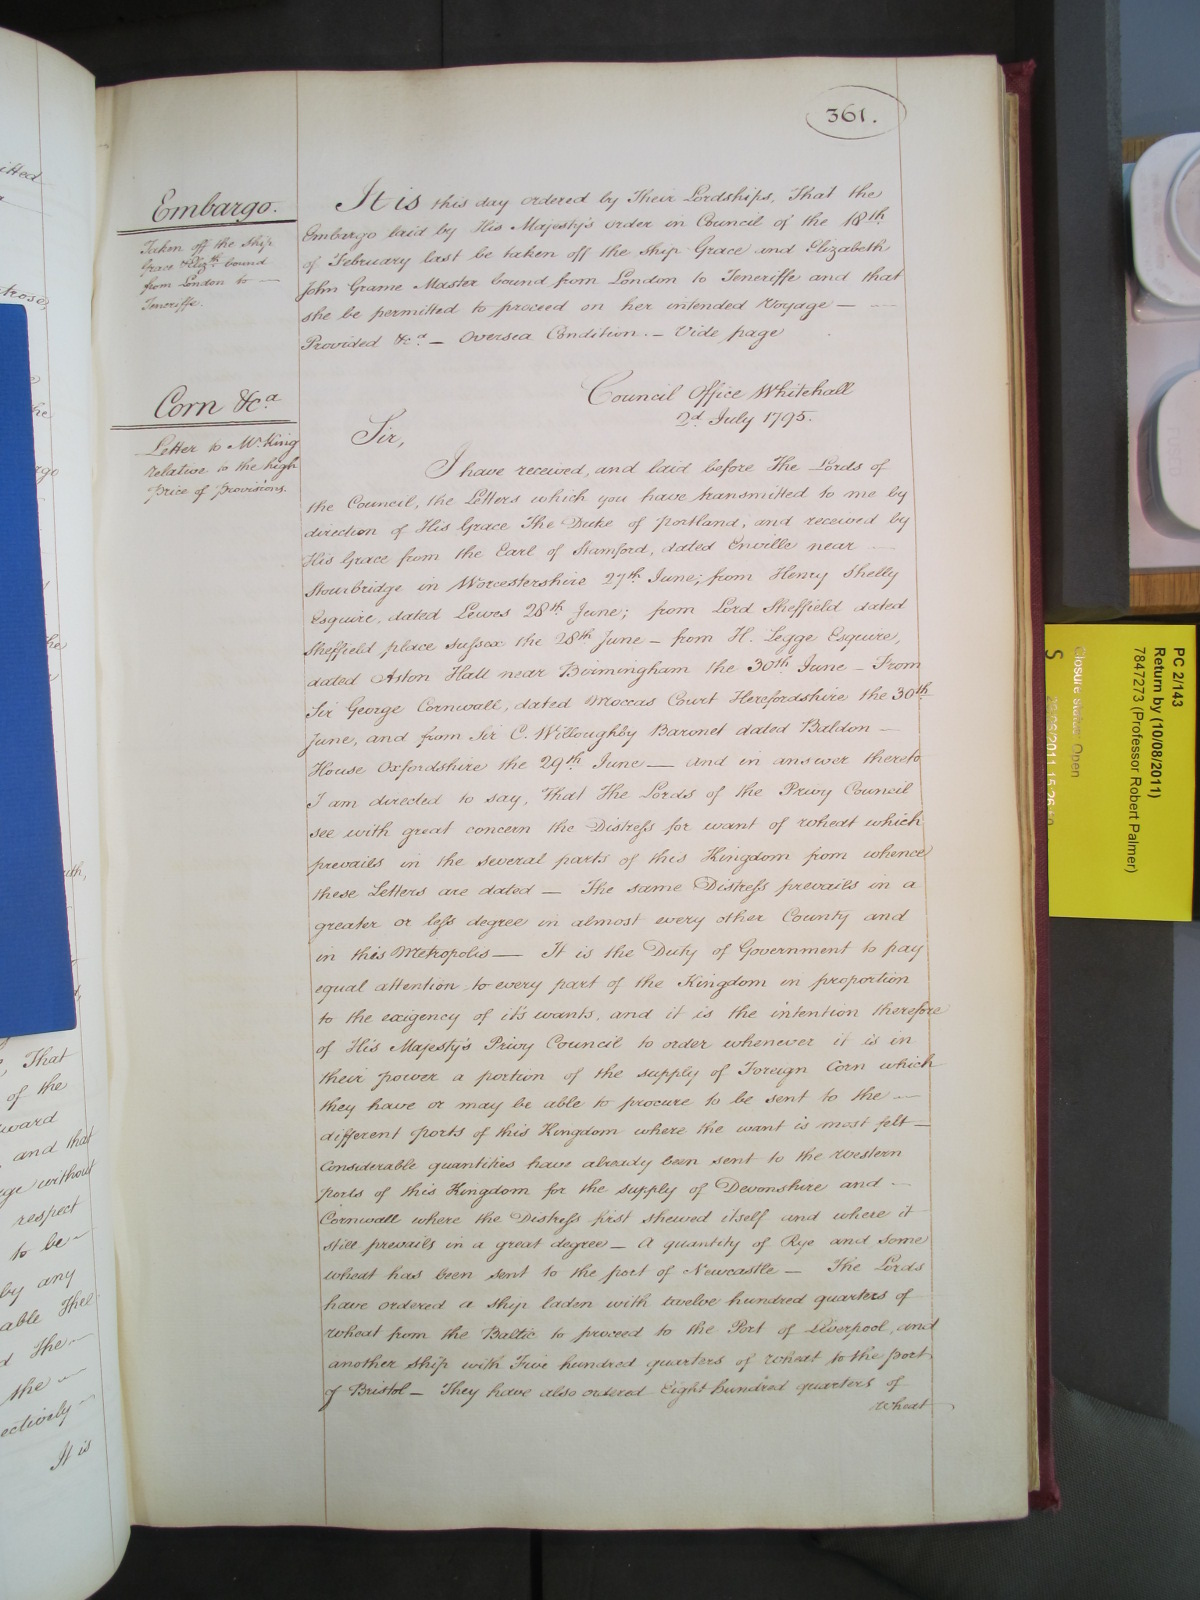 361.
Embargo.
Taken off the Ship
Grace & Eliz.th bound
from London to —
Teneriffe.
It is this day ordered by Their Lordships, That the
Embargo laid by His Majesty's order in Council of the 18th
of February last be taken off the ship Grace and Elizabeth
John Grame Master bound from London to Teneriffe and that
she be permitted to proceed on her intended Voyage —
Provided &c.a — Oversea Condition. — Vide page
Corn &c.a
Letter to Mr. King
relative to the high
Price of Provisions.
Council Office Whitehall
2d July 1795.
Sir,
I have received, and laid before The Lords of
the Council, the Letters which you have transmitted to me by
direction of His Grace The Duke of Portland, and received by
His Grace from the Earl of Stamford, dated Enville near —
Stourbridge in Worcestershire 27th June; from Henry Shelly
Esquire, dated Lewes 28th June; from Lord Sheffield dated
Sheffield place Sussex the 28th June — from H. Legge Esquire,
dated Aston Hall near Birmingham the 30th June — From
Sir George Cornwall, dated Moccas Court Herefordshire the 30th
June, and from Sir C. Willoughby Baronet dated Baldon —
House Oxfordshire the 29th June — and in answer thereto
I am directed to say, That The Lords of the Privy Council
see with great concern the Distress for want of wheat which
prevails in the several parts of this Kingdom from whence
these Letters are dated — The same Distress prevails in a
greater or less degree in almost every other County and
in this Metropolis — It is the Duty of Government to pay
equal attention to every part of the Kingdom in proportion
to the exigency of it's wants, and it is the intention therefore
of His Majesty's Privy Council to order whenever it is in
their power a portion of the supply of Foreign Corn which
they have or may be able to procure to be sent to the —
different ports of this Kingdom where the want is most felt —
Considerable quantities have already been sent to the western
ports of this Kingdom for the supply of Devonshire and —
Cornwall where the Distress first shewed itself and where it
still prevails in a great degree — A quantity of Rye and some
wheat has been sent to the port of Newcastle — The Lords
have ordered a ship laden with twelve hundred quarters of
wheat from the Baltic to proceed to the Port of Liverpool, and
another ship with Five hundred quarters of wheat to the port
of Bristol — They have also ordered Eight hundred quarters of
wheat
That
of the
and that
without
respect
to be —
by any
able The
The —
the —
It is
PC 2/143
Return by (10/08/2011)
7847273 (Professor Robert Palmer)
Closure status: Open
S